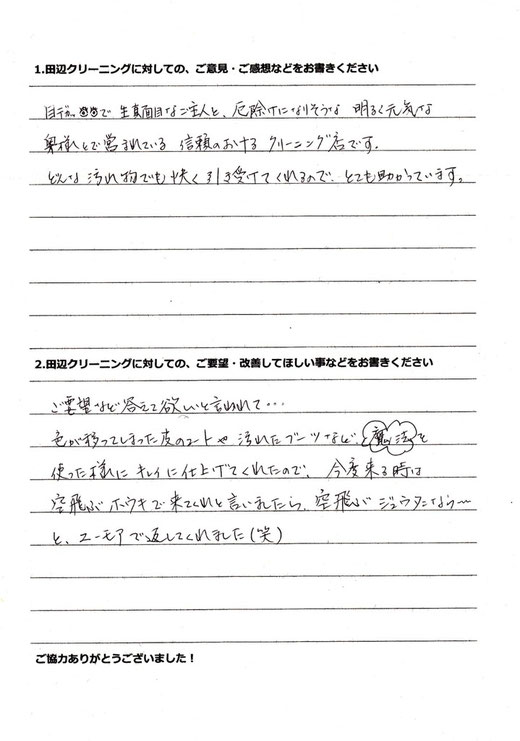 1.田辺クリーニングに対しての、ご意見・ご感想などをお書きください
目デカで 生真面目なご主人と、厄除けになりそうな 明るく元気な
奥様とで営まれている 信頼のおける クリーニング店です。
どんな 汚れ物でも快く引き受けてくれるので、とても助かっています。
2.田辺クリーニングに対しての、ご要望・改善してほしい事などをお書きください
ご要望など答えて欲しいと言われて・・・
色が移ってしまった皮のコートや 汚れたブーツなど、と魔法を
使った様に キレイに仕上げてくれたので、今度来る時は
空飛ぶホウキで来てくれと言いましたら、空飛ぶ ジュウタンなら〜
と、ユーモアで返してくれました(笑)
ご協力ありがとうございました！